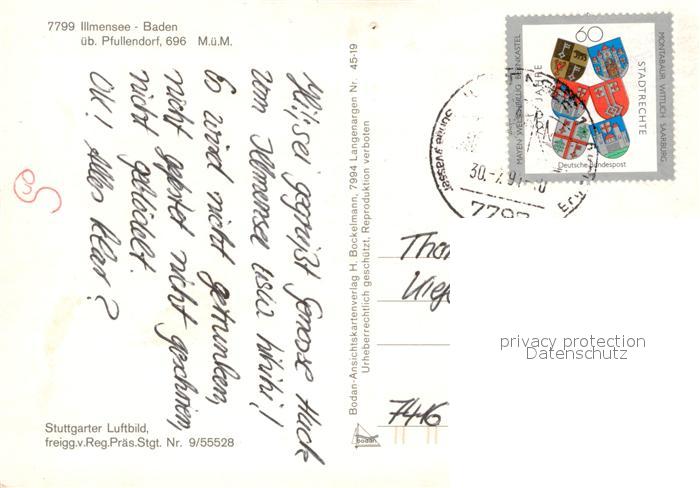 7799 Illmensee - Baden
üb. Pfullendorf, 696 M.ü.M.
gegrüßt Genosse Hack
vom Illmensee usw hihihi!
Es wird nicht getrunken,
nicht gefeiert nicht geschrien,
nicht gelächelt.
OK! Alles klar?
Stuttgarter Luftbild,
freigg.v.Reg.Präs.Stgt. Nr. 9/55528
Bodan-Ansichtskartenverlag H. Bockelmann, 7994 Langenargen Nr. 45-19
Urheberrechtlich geschützt, Reproduktion verboten
bodan
60
MONTABAUR WITTLICH SAARBURG
STADTRECHTE
JAHRE
MAYEN WELSCHBILLIG BERNKASTEL
Deutsche Bundespost
30.-7.91
779
Tho
7416
privacy protection
Datenschutz